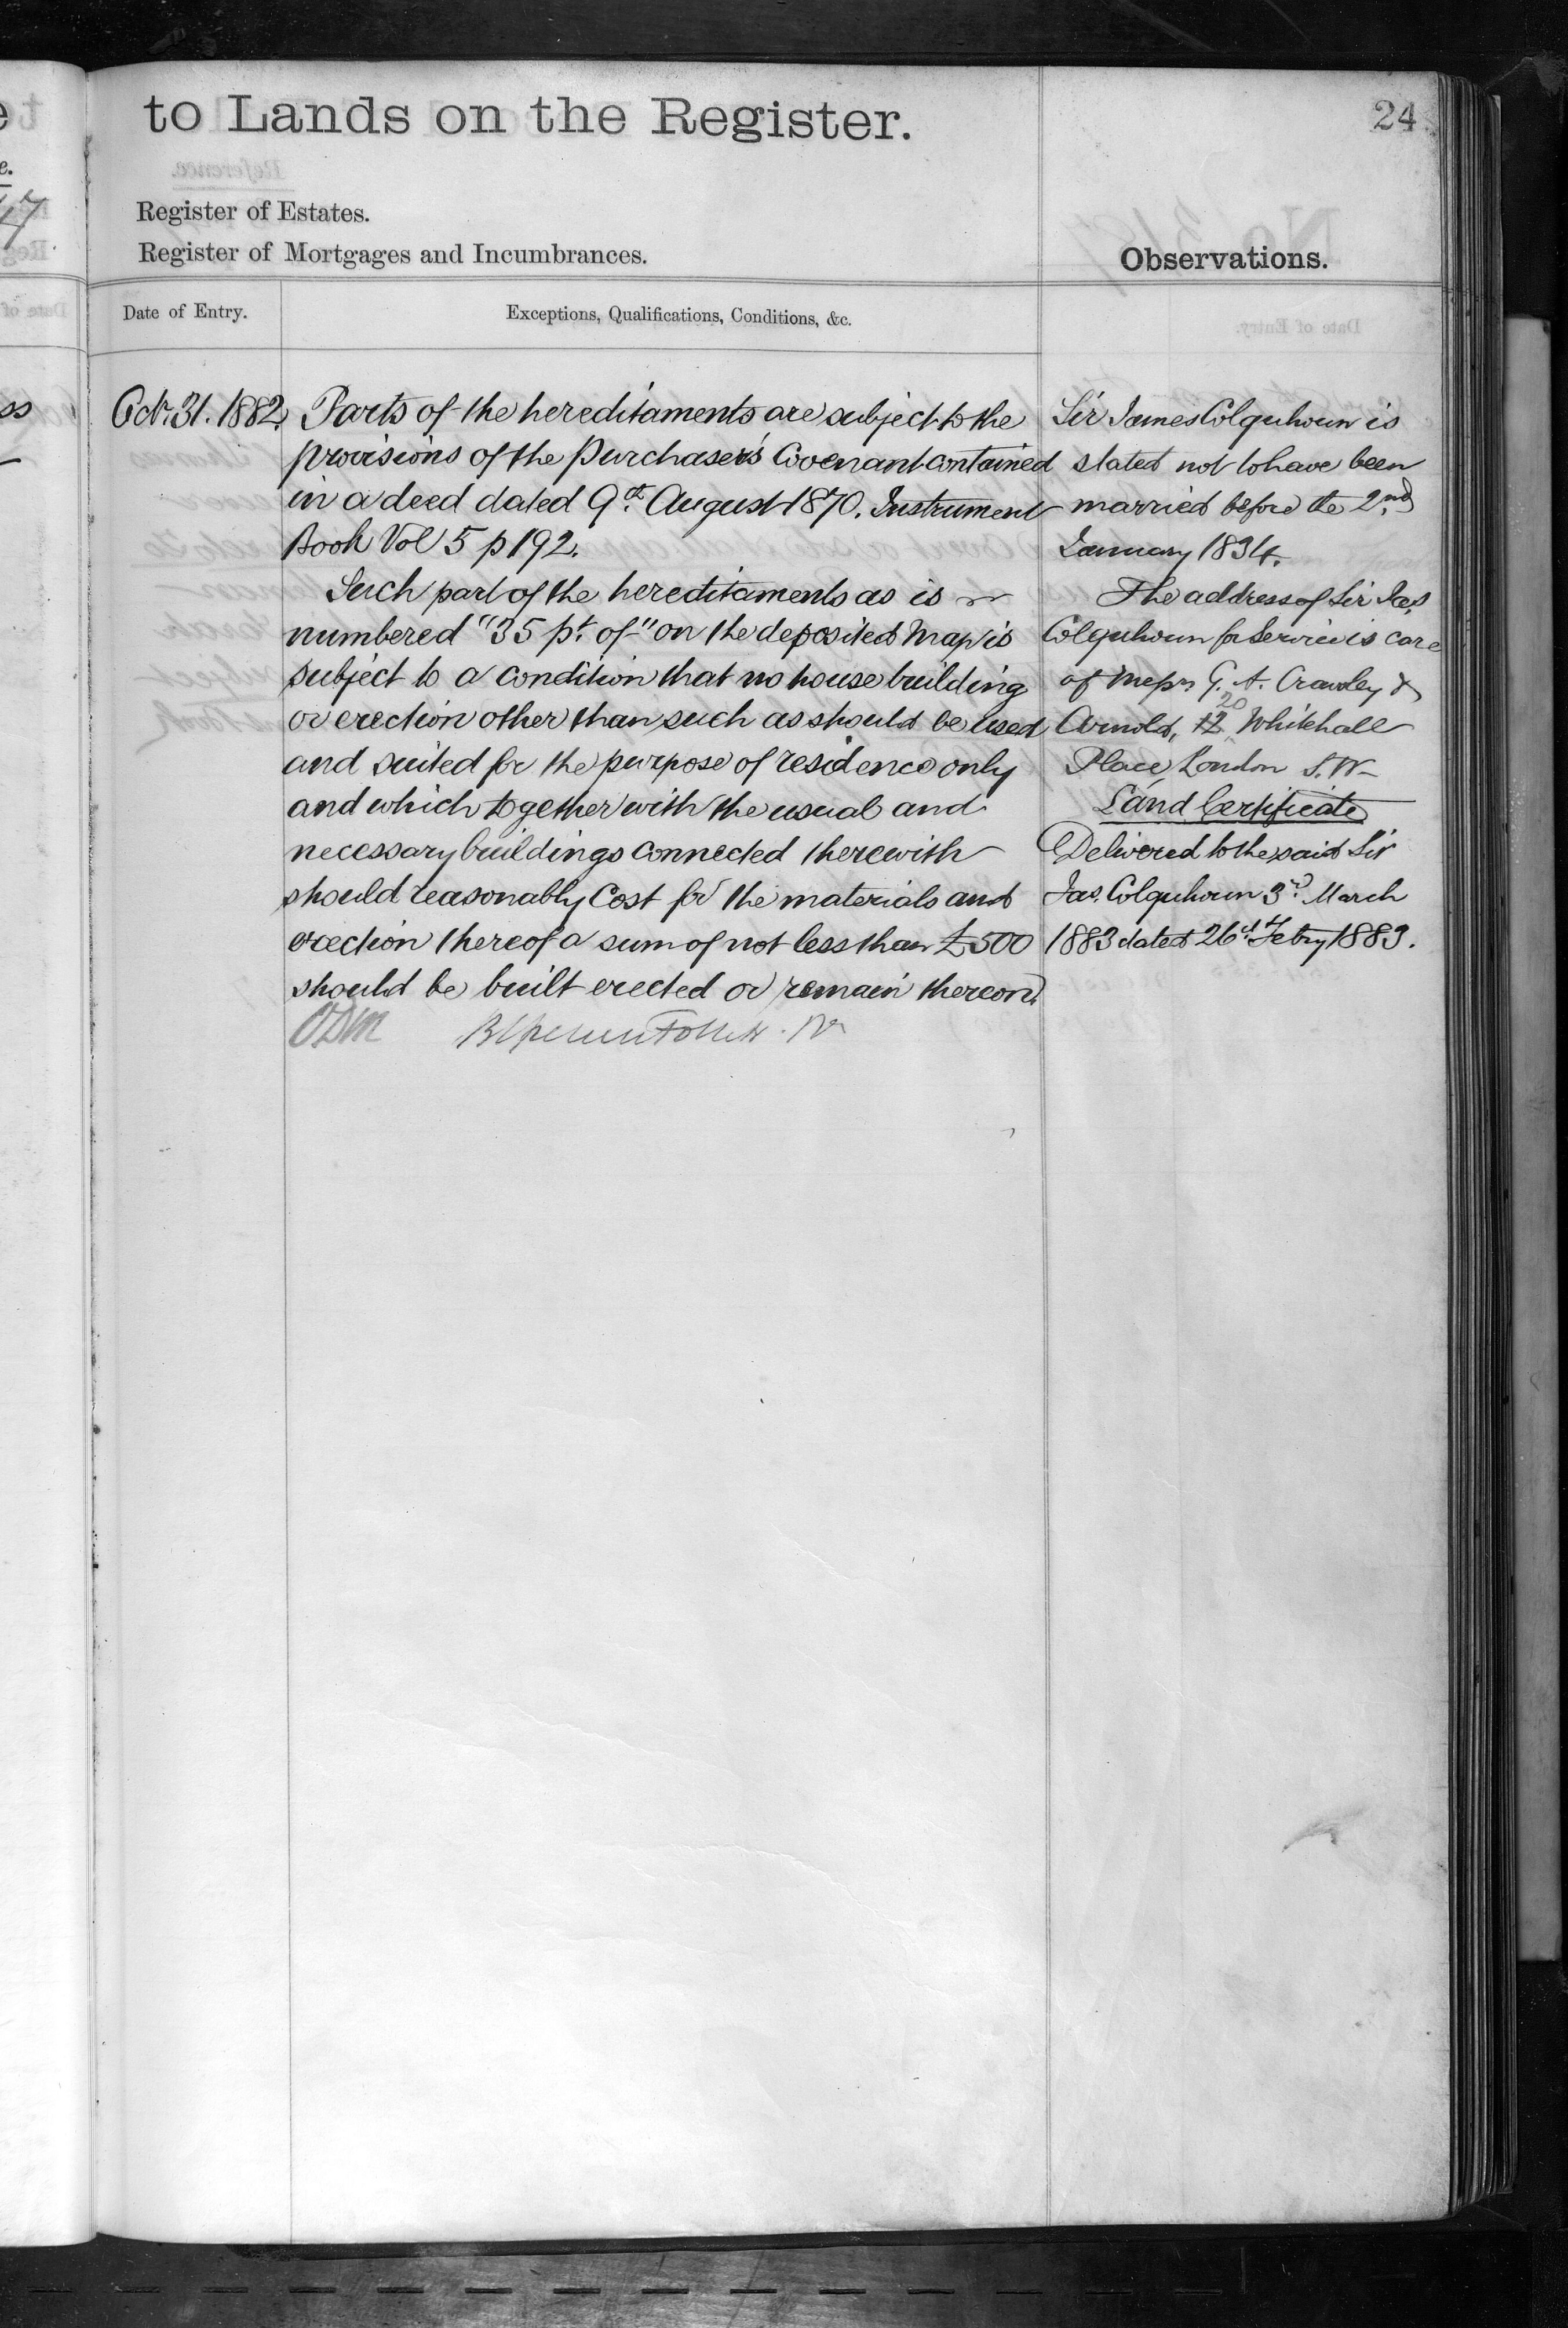 to Lands on the Register.
24
Register of Estates.
Register of Mortgages and Incumbrances.
Observations.
Date of Entry.
Exceptions, Qualifications, Conditions, &c.
Oct. 31. 1882.
Parts of the hereditaments are subject to the
provisions of the Purchaser's Covenant contained
in a deed dated 9th August 1870. Instrument
Book Vol 5 p 192.
Such part of the hereditaments as is
numbered "35 pt. of" on the deposited Map is
subject to a condition that no house building
or erection other than such as should be used
and suited for the purpose of residence only
and which together with the usual and
necessary buildings connected therewith
should reasonably Cost for the materials and
erection thereof a sum of not less than £500
should be built erected or remain thereon.
Sir James Colquhoun is
stated not to have been
married before the 2nd
January 1834.
The address of Sir Jas.
Colquhoun for Service is care
of Messrs G. A. Crawley &
Arnold, 12 20 Whitehall
Place, London S.W.
Land Certificate
Delivered to the said Sir
Jas. Colquhoun 3rd March
1883 dated 26th Febry 1883.